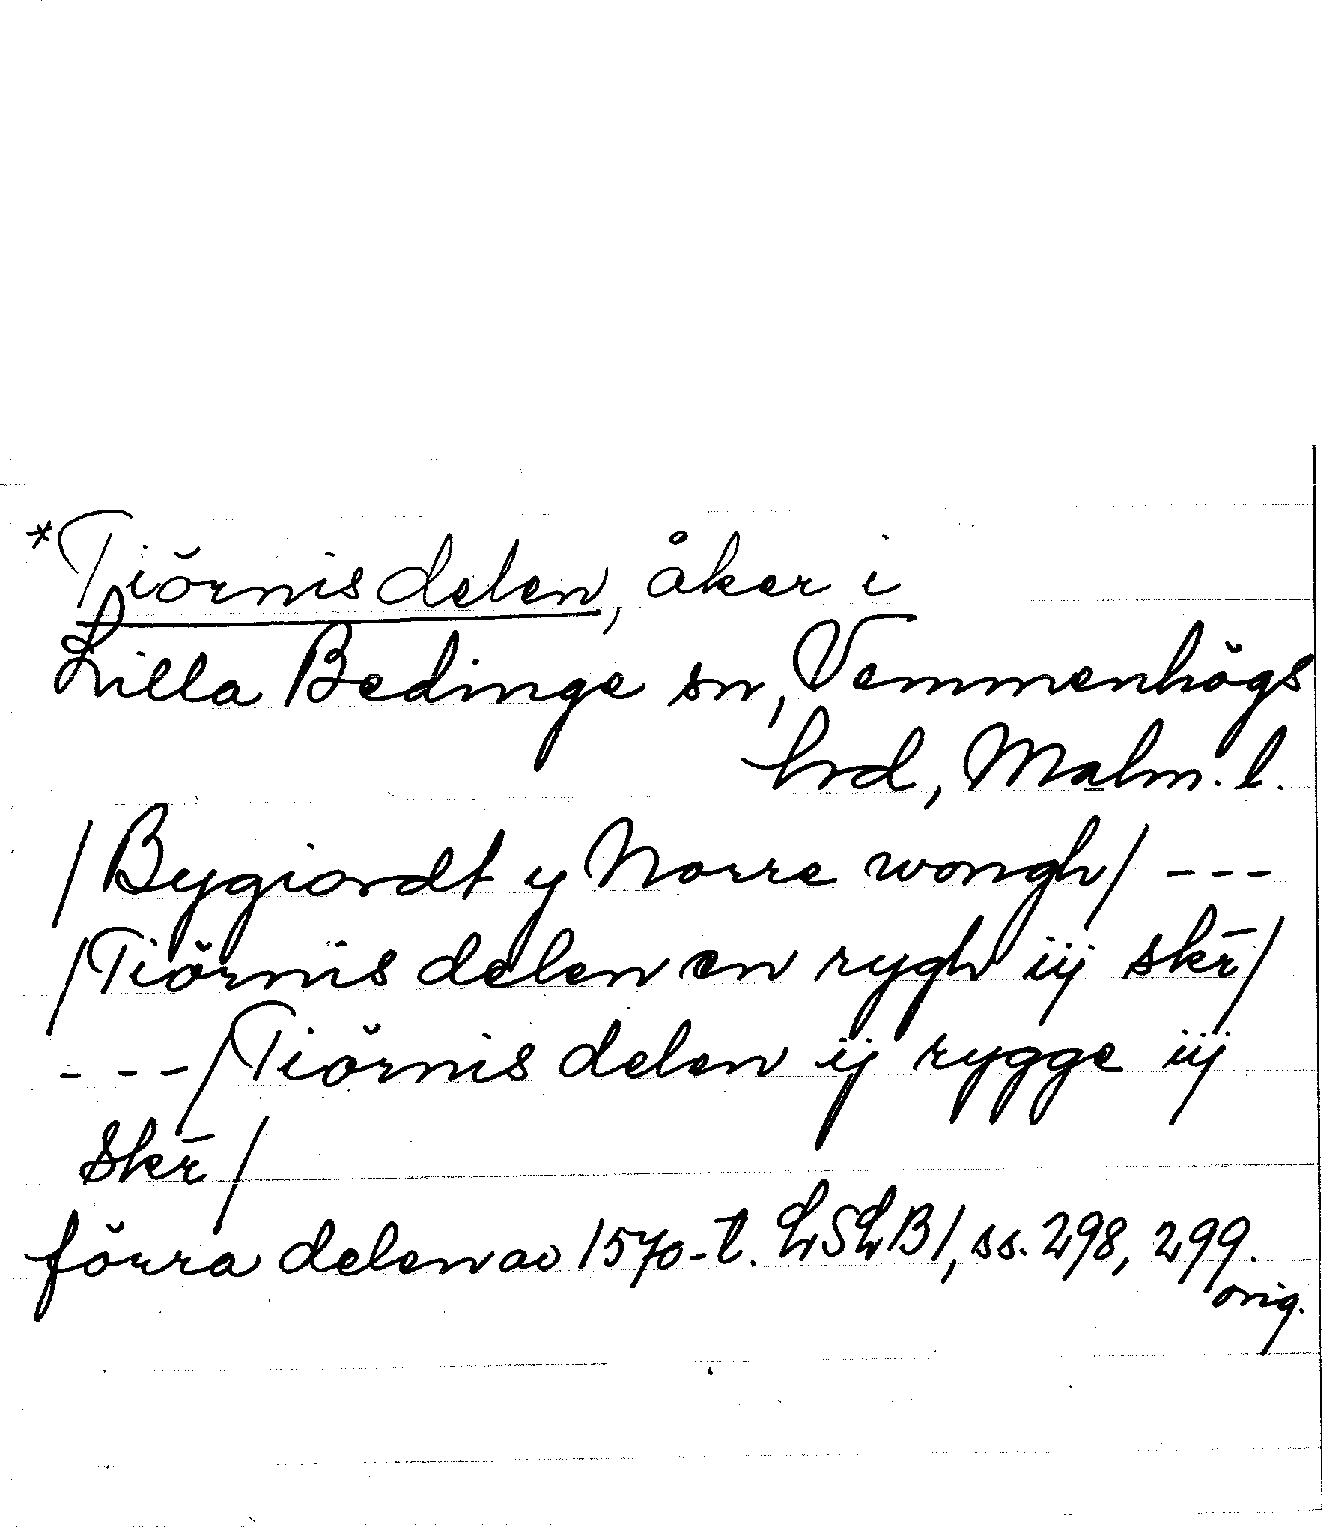 *Tiörnis delen, åker i
Lilla Bedinge sn, Vemmenhögs
hrd, Malm. l.
/Bygiordt y Norre wongh/ ---
/Tiörnis delen en rygh iij skr̄/
---/Tiörnis delen ij rygge iij
skr̄/
förra delen av 1570-t. LSLB1, ss. 298, 299.
orig.